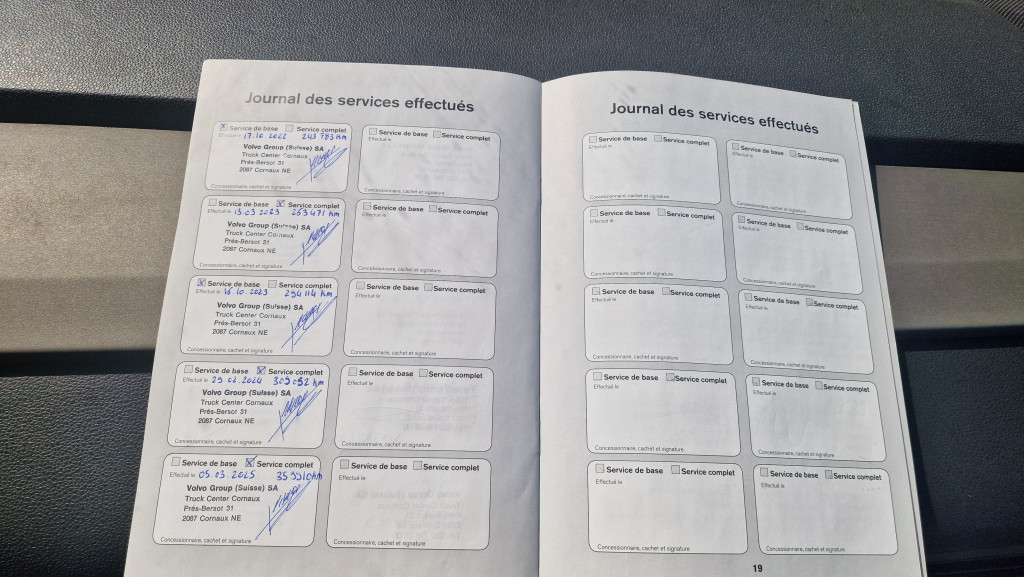 Journal des services effectués
Service de base Service complet
Effectué le 17.10.2022 243 783 km
Volvo Group (Suisse) SA
Truck Center Cornaux
Prés-Bersot 31
2087 Cornaux NE
Concessionnaire, cachet et signature
Service de base Service complet
Effectué le 13.03 2023 263 471 km
Volvo Group (Suisse) SA
Truck Center Cornaux
Prés-Bersot 31
2087 Cornaux NE
Concessionnaire, cachet et signature
Service de base Service complet
Effectué le 16.10.2023 294 114 km
Volvo Group (Suisse) SA
Truck Center Cornaux
Prés-Bersot 31
2087 Cornaux NE
Concessionnaire, cachet et signature
Service de base Service complet
Effectué le 29.02.2024 309 052 km
Volvo Group (Suisse) SA
Truck Center Cornaux
Prés-Bersot 31
2087 Cornaux NE
Concessionnaire, cachet et signature
Service de base Service complet
Effectué le 05.03.2025
Volvo Group (Suisse) SA
Truck Center Cornaux
Prés-Bersot 31
2087 Cornaux NE
Concessionnaire, cachet et signature
Service de base Service complet
Effectué le
Concessionnaire, cachet et signature
Service de base Service complet
Effectué le
Concessionnaire, cachet et signature
Service de base Service complet
Effectué le
Concessionnaire, cachet et signature
Service de base Service complet
Effectué le
Concessionnaire, cachet et signature
Service de base Service complet
Effectué le
Concessionnaire, cachet et signature
Journal des services effectués
Service de base Service complet
Effectué le
Concessionnaire, cachet et signature
Service de base Service complet
Effectué le
Concessionnaire, cachet et signature
Service de base Service complet
Effectué le
Concessionnaire, cachet et signature
Service de base Service complet
Effectué le
Concessionnaire, cachet et signature
Service de base Service complet
Effectué le
Concessionnaire, cachet et signature
Service de base Service complet
Effectué le
Concessionnaire, cachet et signature
Service de base Service complet
Effectué le
Concessionnaire, cachet et signature
Service de base Service complet
Effectué le
Concessionnaire, cachet et signature
Service de base Service complet
Effectué le
Concessionnaire, cachet et signature
Service de base Service complet
Effectué le
Concessionnaire, cachet et signature
19